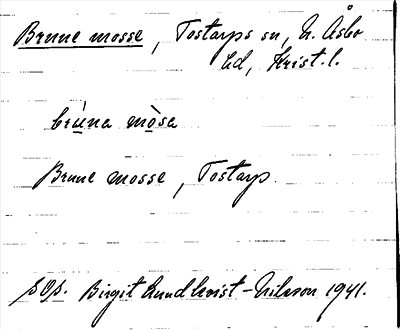 Brune mosse, Tostarps sn, N. Åsbo
hd, Krist. l.
brùna mòsa
Brune mosse, Tostarp.
Birgit Lundkvist-Nilsson 1941.